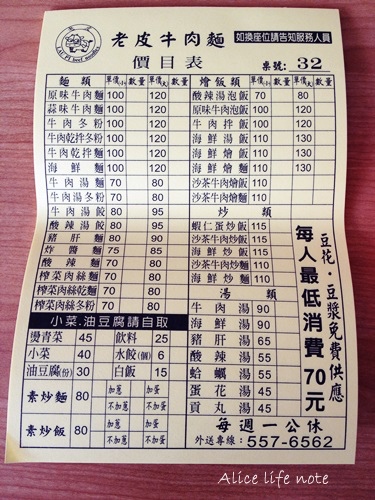 老皮牛肉麵
LAO PI beef noodles
如換座位請告知服務人員
價目表
桌號: 32
麵類 單價(小) 數量 單價(大) 數量
原味牛肉麵 100 120
蒜味牛肉麵 100 120
牛肉冬粉 100 120
牛肉乾拌冬粉 100 120
牛肉乾拌麵 100 120
海鮮麵 100 120
牛肉湯麵 70 80
牛肉湯餃 80 95
酸辣湯餃 80 95
豬肝麵 80
炸醬麵 75 85
酸辣麵 70 80
榨菜肉絲麵 70 80
榨菜肉絲乾麵 70 80
榨菜肉絲冬粉 70 80
小菜.油豆腐請自取
燙青菜 45 飲料 25
小菜 40 水餃(個) 6
油豆腐(份) 30 白飯 15
素炒麵 80 加蔥 加蛋
不加蔥 不加蛋
素炒飯 80 加蔥 加蛋
不加蔥 不加蛋
燴飯類 單價(小) 數量 單價(大) 數量
酸辣湯泡飯 70 80
原味牛肉泡飯 100 120
牛肉拌飯 100 120
海鮮湯飯 110 130
海鮮燴飯 110 130
海鮮燴麵 110 130
沙茶牛肉燴飯 110
沙茶牛肉燴麵 110
炒類
蝦仁蛋炒飯 115
海鮮炒飯 115
沙茶牛肉炒飯 110
海鮮炒麵 115
沙茶牛肉炒麵 110
湯類
牛肉湯 90
海鮮湯 90
豬肝湯 65
酸辣湯 55
蛤蠣湯 55
蛋花湯 45
貢丸湯 45
豆花·豆漿免費供應
每人最低消費70元
每週一公休
外送專線: 557-6562
Alice life note